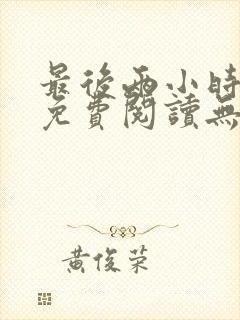 最後兩小時
免費閱讀無
黃俊荣